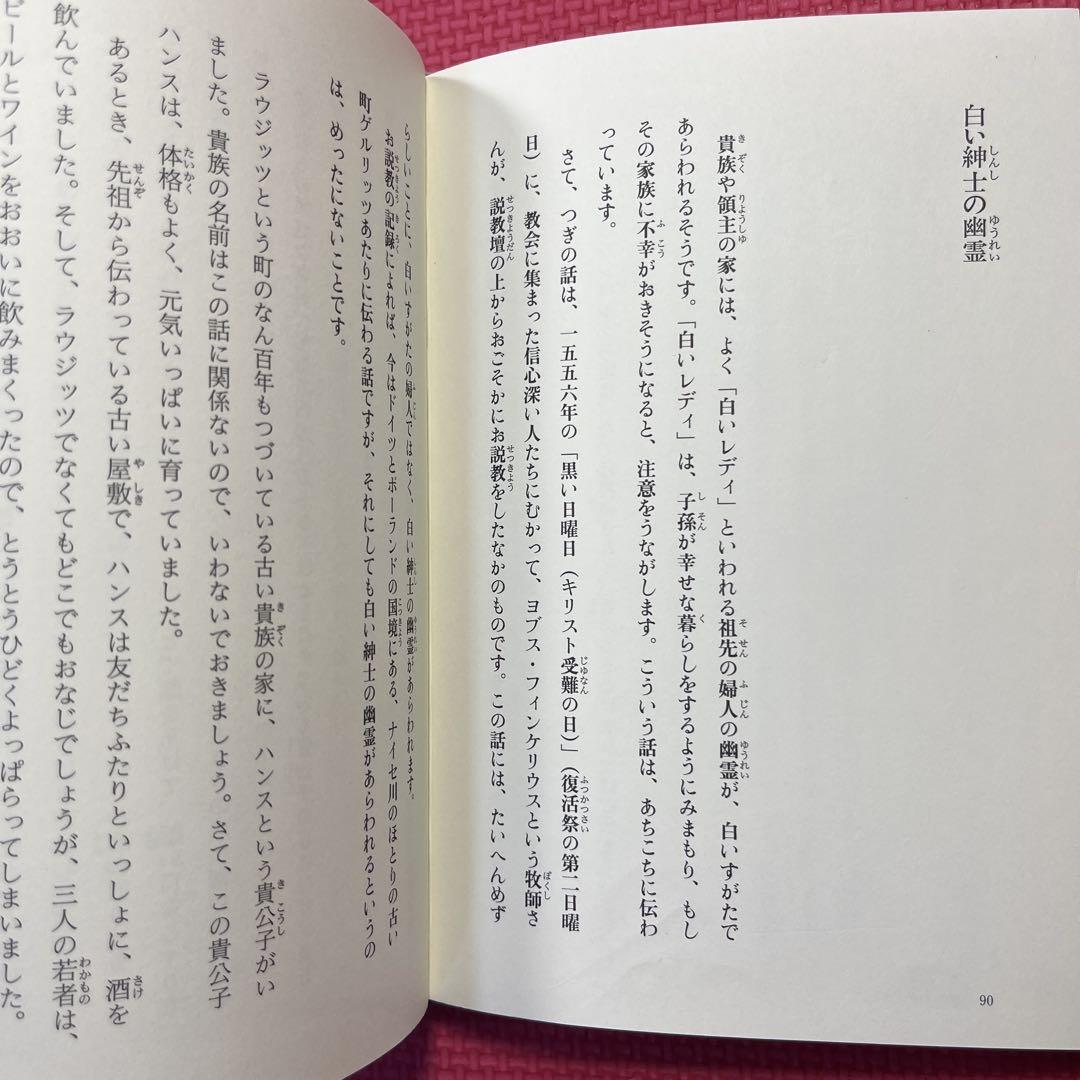 白い紳士の幽霊
貴族や領主の家には、よく「白いレディ」といわれる祖先の婦人の幽霊が、白いすがたで
あらわれるそうです。「白いレディ」は、子孫が幸せな暮らしをするようにみまもり、もし
その家族に不幸がおきそうになると、注意をうながします。こういう話は、あちこちに伝わ
っています。
さて、つぎの話は、一五五六年の「黒い日曜日(キリスト受難の日)」(復活祭の第二日曜
日)に、教会に集まった信心深い人たちにむかって、ヨブス・フィンケリウスという牧師さ
んが、説教壇の上からおごそかにお説教をしたなかのものです。この話には、たいへんめず
90
らしいことに、白いすがたの婦人ではなく、白い紳士の幽霊があらわれます。
お説教の記録によれば、今はドイツとポーランドの国境にある、ナイセ川のほとりの古い
町ゲルリッツあたりに伝わる話ですが、それにしても白い紳士の幽霊があらわれるというの
は、めったにないことです。
ラウジッツという町のなん百年もつづいている古い貴族の家に、ハンスという貴公子がい
ました。貴族の名前はこの話に関係ないので、いわないでおきましょう。さて、この貴公子
ハンスは、体格もよく、元気いっぱいに育っていました。
あるとき、先祖から伝わっている古い屋敷で、ハンスは友だちふたりといっしょに、酒を
飲んでいました。そして、ラウジッツでなくてもどこでもおなじでしょうが、三人の若者は、
ビールとワインをおおいに飲みまくったので、とうとうひどくよっぱらってしまいました。